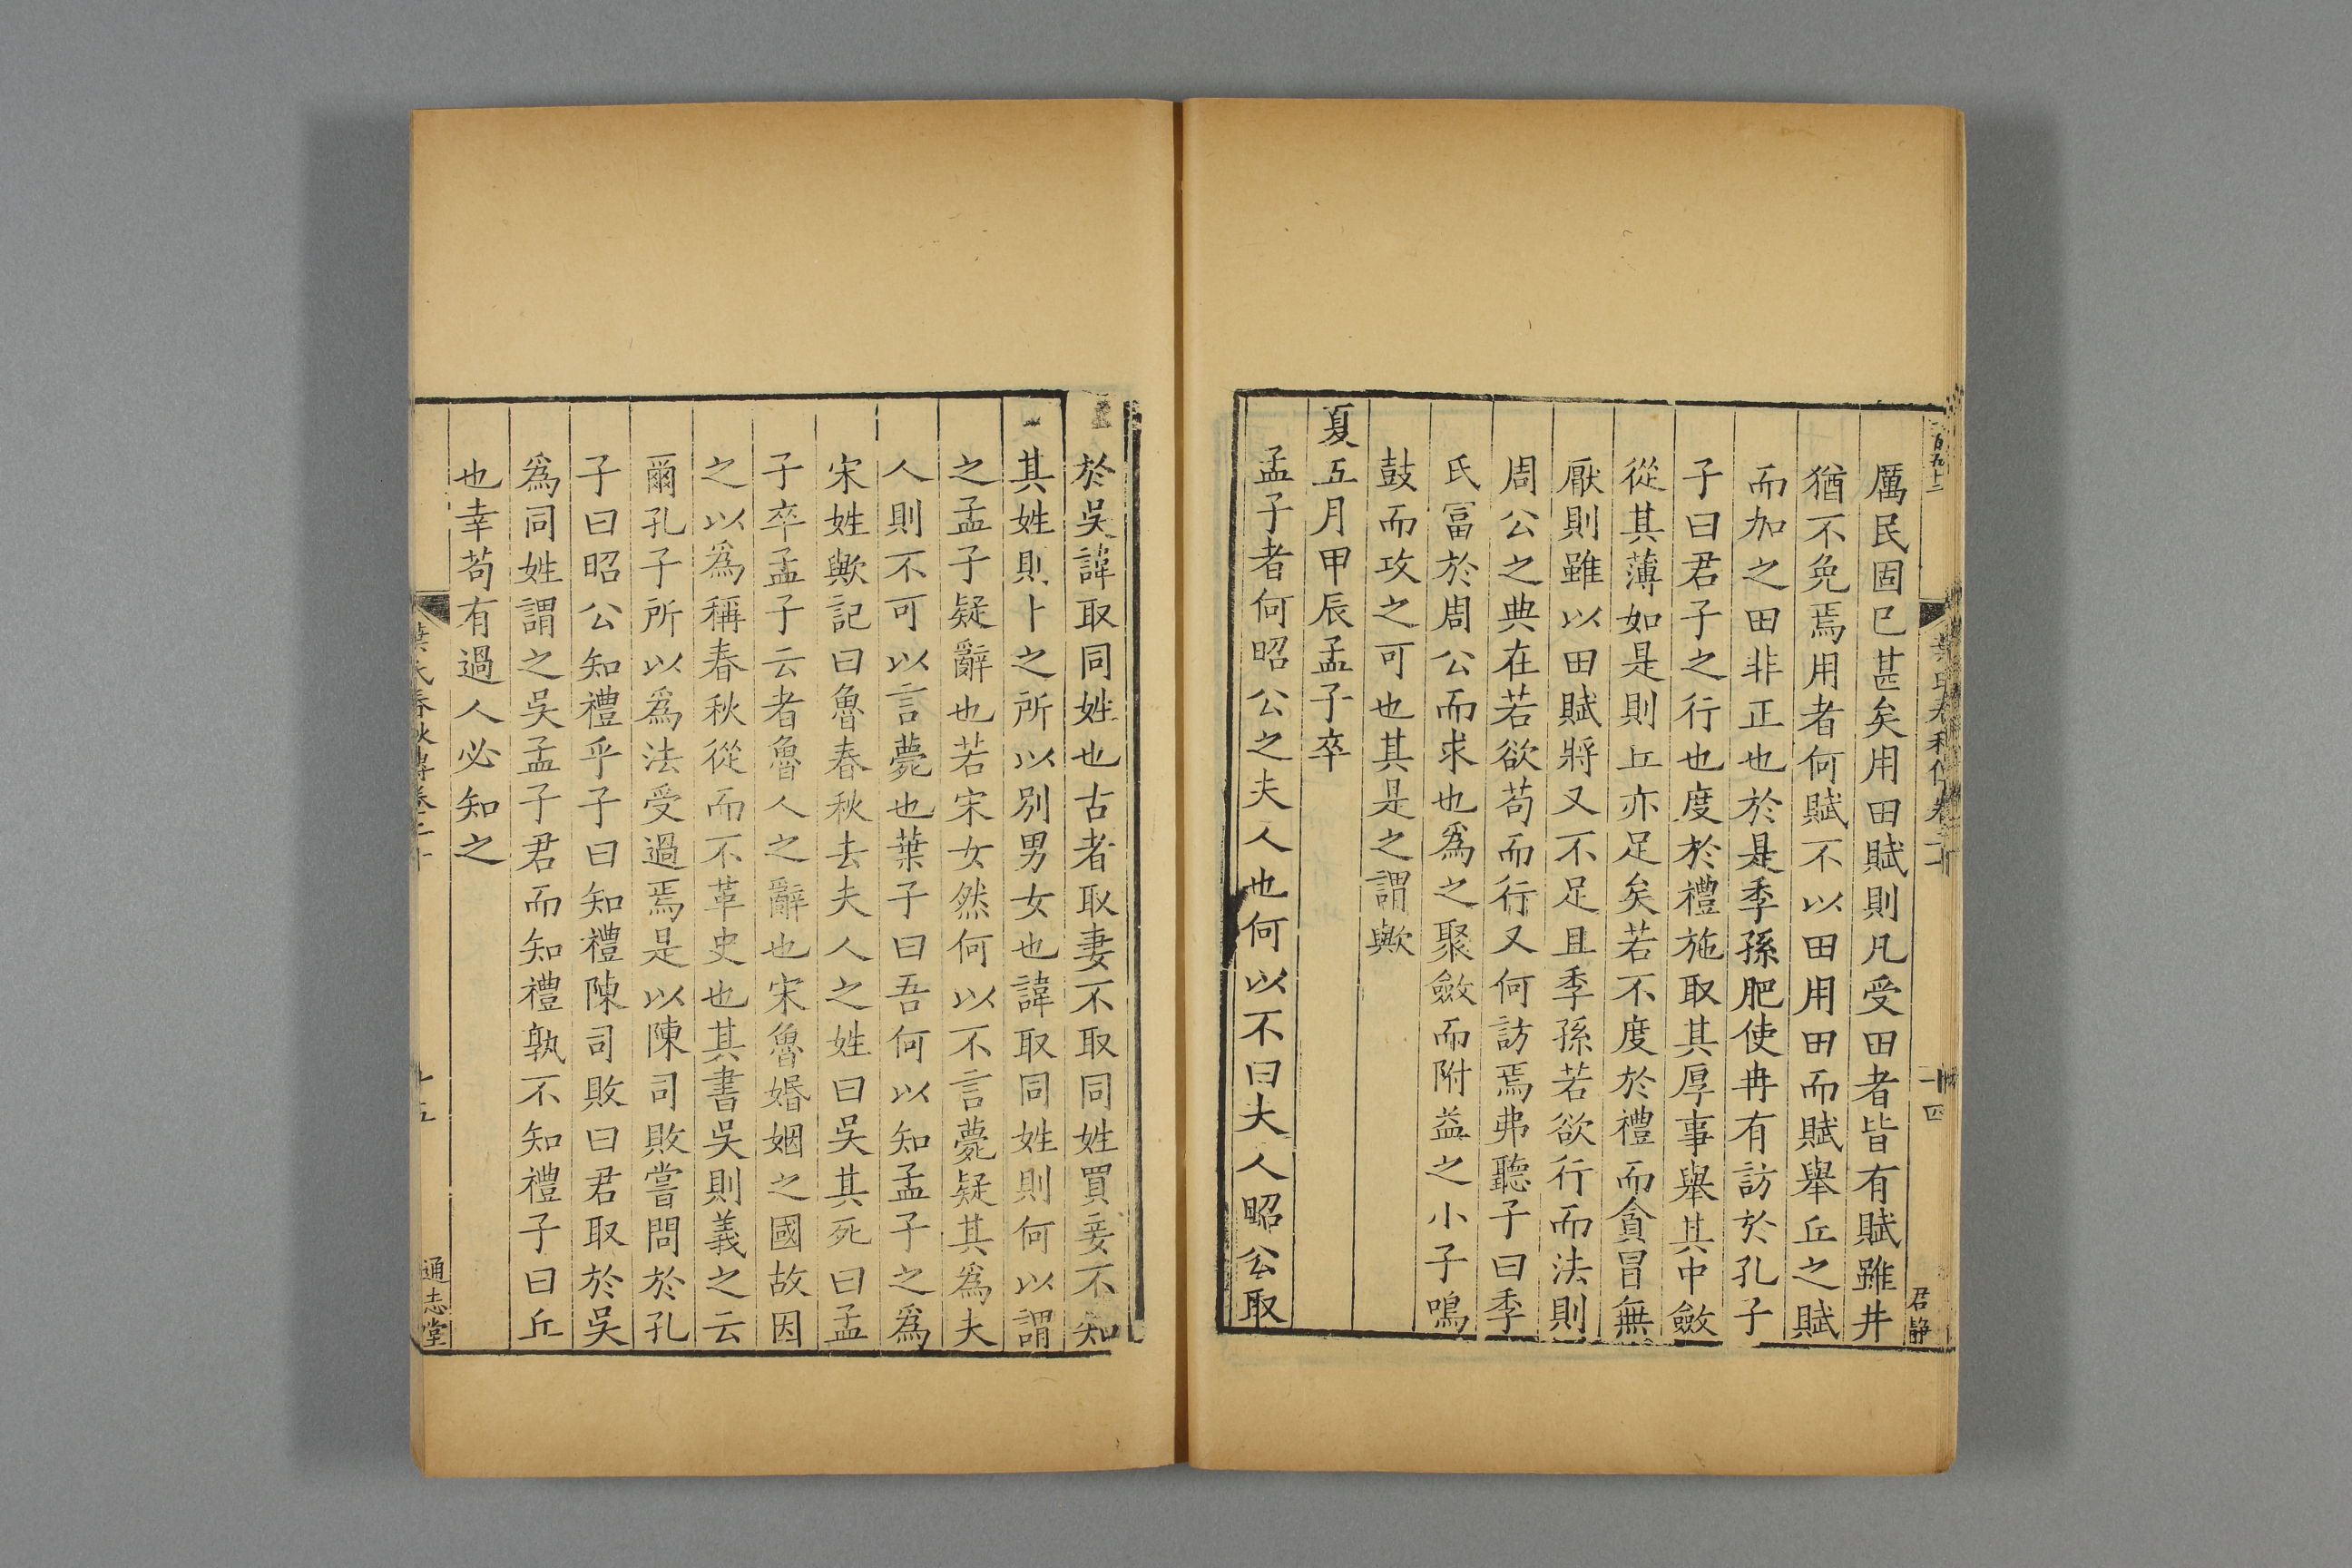 厲民固已甚矣用田賦則凡受田者皆有賦雖井
猶不免焉用者何賦不以田用田而賦舉丘之賦
而加之田非正也於是季孫肥使冉有訪於孔子
子曰君子之行也度於禮施取其厚事舉其中斂
從其薄如是則丘亦足矣若不度於禮而貪冒無
厭則雖以田賦將又不足且季孫若欲行而法則
周公之典在若欲苟而行又何訪焉弗聽子曰季
氏富於周公而求也為之聚斂而附益之小子鳴
鼓而攻之可也其是之謂歟
夏五月甲辰孟子卒
孟子者何昭公之夫人也何以不曰夫人昭公取
於吳諱取同姓也古者取妻不取同姓買妾不知
其姓則卜之所以別男女也諱取同姓則何以謂
之孟子疑辭也若宋女然何以不言薨疑其為夫
人則不可以言薨也葉子曰吾何以知孟子之為
宋姓歟記曰魯春秋去夫人之姓曰吳其死曰孟
子卒孟子云者魯人之辭也宋魯婚姻之國故因
之以為稱春秋從而不革史也其書吳則義之云
爾孔子所以為法受過焉是以陳司敗嘗問於孔
子曰昭公知禮乎子曰知禮陳司敗曰君取於吳
為同姓謂之吳孟子君而知禮孰不知禮子曰丘
也幸苟有過人必知之
百九十二
葉氏春秋傳卷二十
十四
君靜
葉氏春秋傳卷二十
十五
通志堂